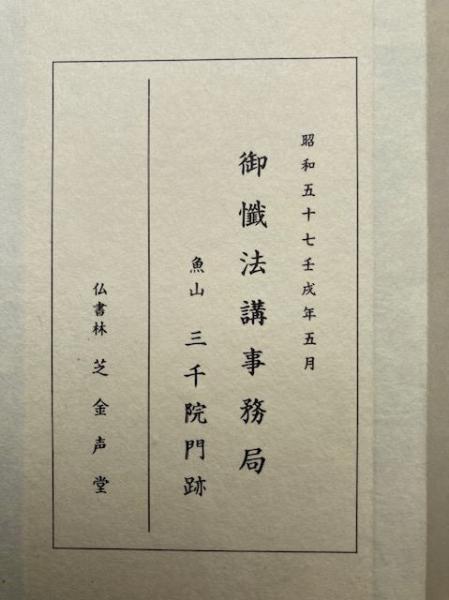 昭和五十七壬戌年五月
御懺法講事務局
魚山 三千院門跡
仏書林 芝金声堂